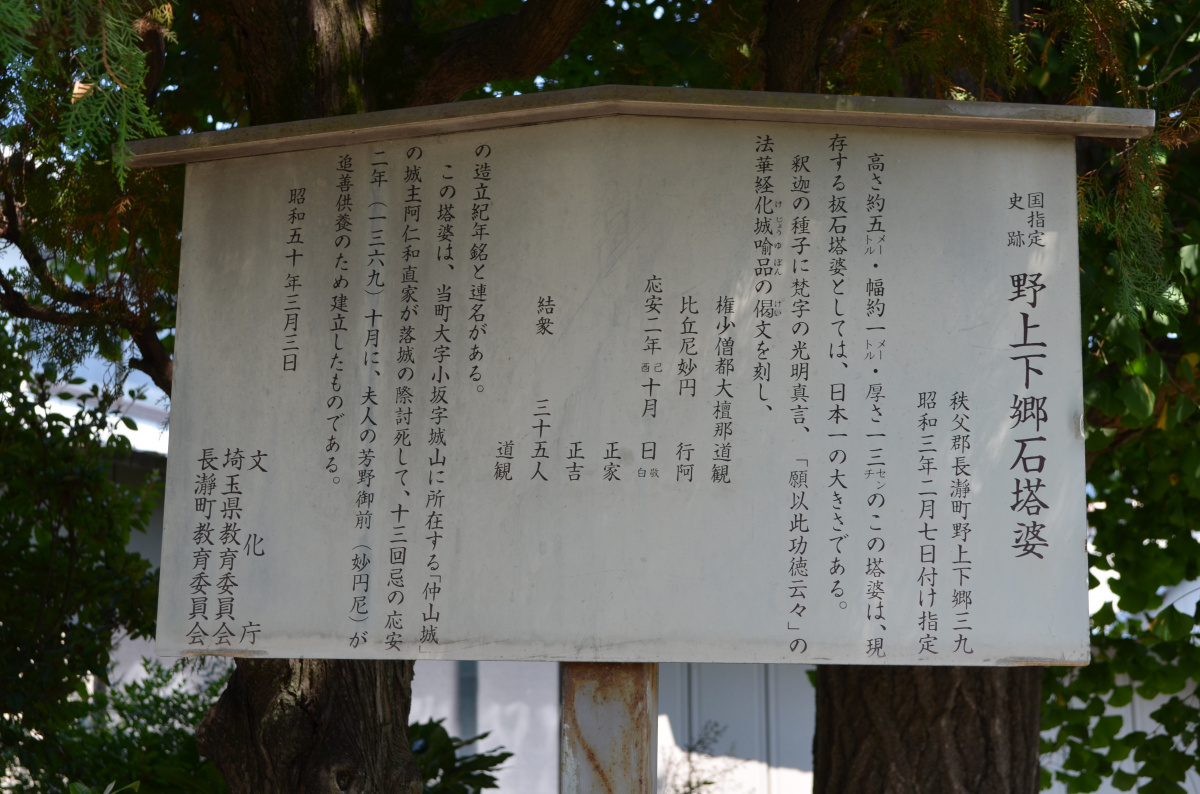 国指定
史跡 野上下郷石塔婆
秩父郡長瀞町野上下郷三九
昭和三年二月七日付け指定
高さ約五メートル・幅約一メートル・厚さ一三センチのこの塔婆は、現
存する板石塔婆としては、日本一の大きさである。
釈迦の種子に梵字の光明真言、「願以此功徳云々」の
法華経化城喩品の偈文を刻し、
けじょうゆほん
げ
権少僧都大檀那道観
比丘尼妙円 行阿
応安二年己酉十月 日敬白
正家
正吉
結衆 三十五人
道観
の造立紀年銘と連名がある。
この塔婆は、当町大字小坂字城山に所在する「仲山城」
の城主阿仁和直家が落城の際討死して、十三回忌の応安
二年（一三六九）十月に、夫人の芳野御前（妙円尼）が
追善供養のため建立したものである。
昭和五十年三月三日
文化庁
埼玉県教育委員会
長瀞町教育委員会